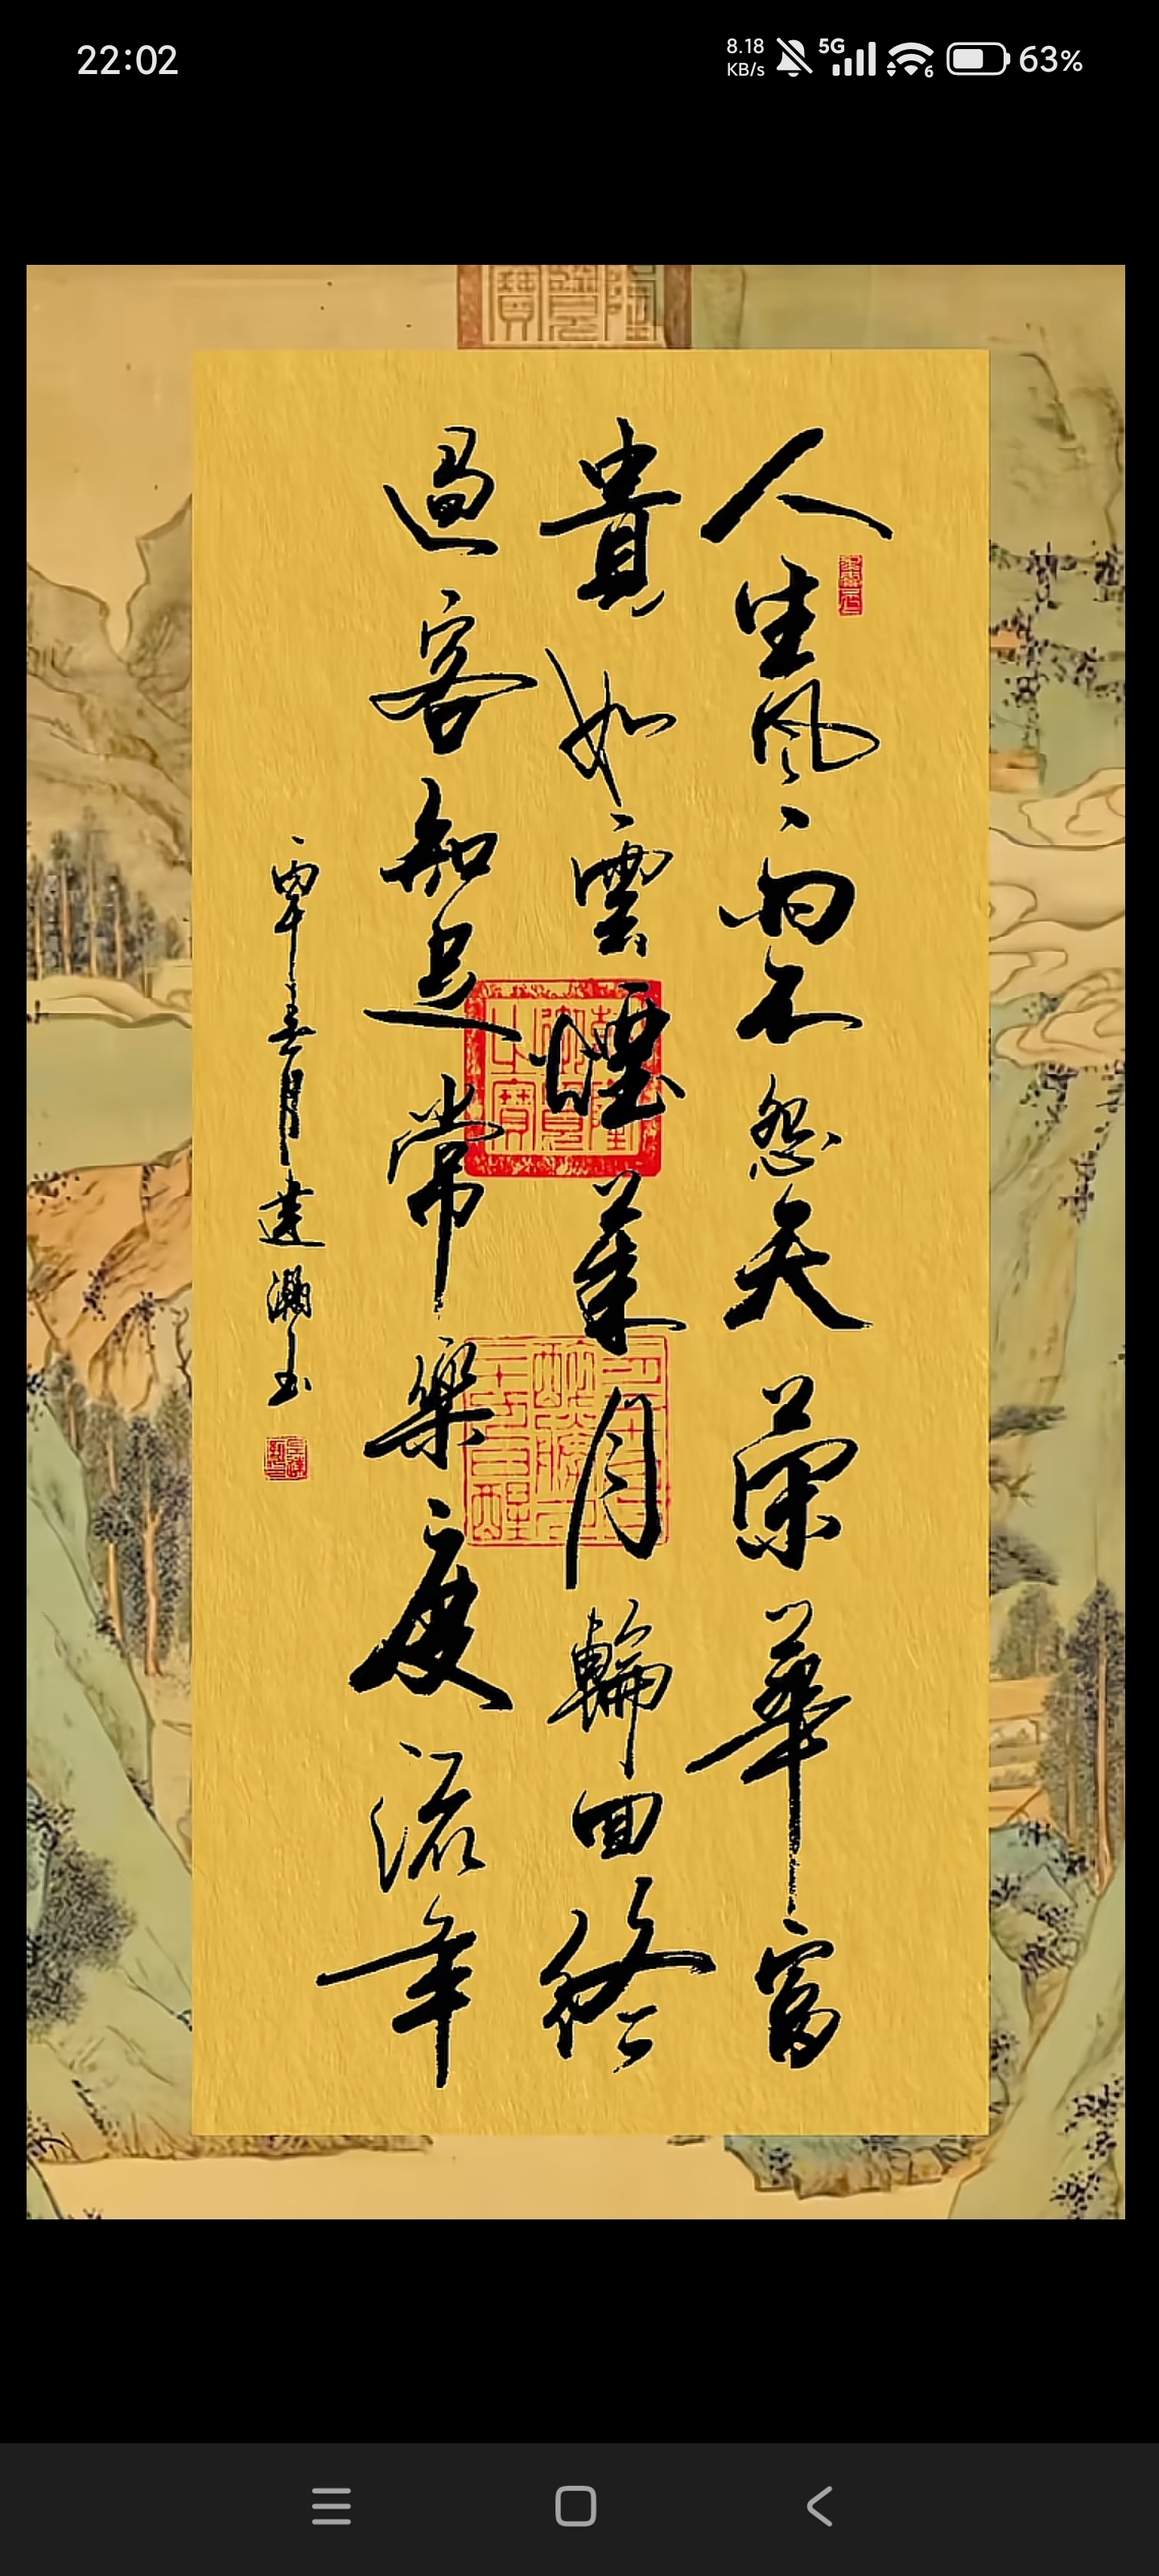 22:02
8.18 KB/s 5G 6 63%
人生風雨不怨天榮華富
貴如雲煙葉月輪回終
過客知足常樂度流年